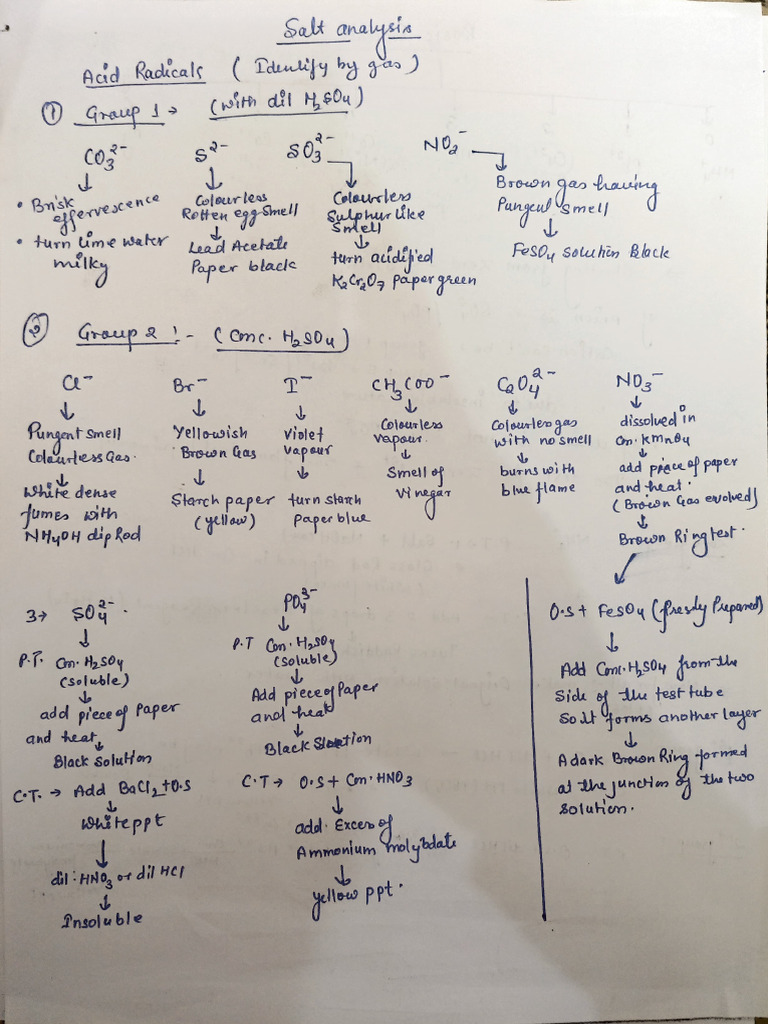 Salt analysis
Acid Radicals ( Identify by gas )
① Group 1 → (with dil H₂SO₄)
CO₃²⁻
↓
• Brisk
effervescence
• turn lime water
milky
S²⁻
↓
Colourless
Rotten egg smell
↓
Lead Acetate
Paper black
SO₃²⁻
↓
Colourless
Sulphur like
Smell
↓
turn acidified
K₂Cr₂O₇ paper green
NO₂⁻
↓
Brown gas having
Pungent smell
↓
FeSO₄ solution Black
② Group 2 :- (Conc. H₂SO₄)
Cl⁻
↓
Pungent smell
Colourless Gas.
↓
White dense
fumes with
NH₄OH dip Rod
Br⁻
↓
Yellowish
Brown Gas
↓
Starch paper
(yellow)
I⁻
↓
Violet
vapour
↓
turn starch
paper blue
CH₃COO⁻
↓
Colourless
vapour.
↓
Smell of
vinegar
C₂O₄²⁻
↓
Colourless gas
with no smell
↓
burns with
blue flame
NO₃⁻
↓
dissolved in
Con. KMnO₄
↓
add piece of paper
and heat.
(Brown Gas evolved)
↓
Brown Ring test.
↓
O.S + FeSO₄ (fresly Prepared)
↓
Add Conc. H₂SO₄ from the
side of the test tube
So it forms another layer
↓
A dark Brown Ring formed
at the junction of the two
solution.
3→ SO₄²⁻.
↓
P.T. Con. H₂SO₄
(soluble)
↓
add piece of Paper
and heat
↓
Black solution
C.T. → Add BaCl₂ + O.S
↓
White ppt
↓
dil: HNO₃ or dil HCl
↓
Insoluble
PO₄³⁻
↓
P.T Con. H₂SO₄
(soluble)
↓
Add piece of Paper
and heat
↓
Black Solution
C.T → O.S + Con. HNO₃
↓
add Excess of
Ammonium molybdate
↓
yellow ppt.